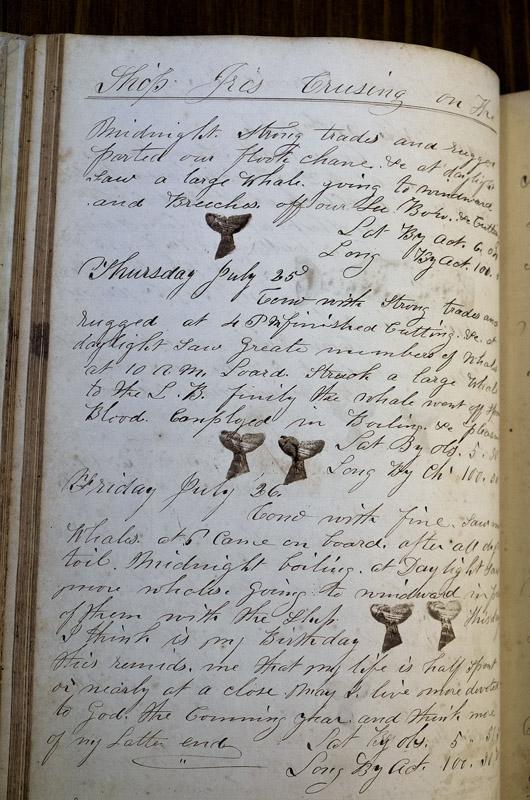 Ship Ira's Crusing on The
Midnight. Strong trades and rugged
parted our flook chane. &c at daylight
Saw a large Whale. going to windward
and Breeches off our Lee. Bow. &c Cutting
Lat By act. 6.
Long By act. 100.
Thursday July 25
Coms with strong trades and
rugged at 4 PM finished Cutting. &c. at
daylight Saw Greate numbers of Whales
at 10 A.M. Loard. Struck a large Whale
to the L. B. finily the whale went off
Blood. Employed in Boiling. &c
Lat By obs. 5.
Long By Ch 100.
Friday July 26.
Coms with fine. Saw
Whals. at P Came on board. after all day
toil. Midnight boiling. at Day light Saw
more whales. Going. to windward
of them with the Ship. This day
I think is my Birthday
this reminds. me that my life is half Spent
or nearly at a close may I. live more devoted
to God. the Comming year. and think more
of my Latter end
Lat By obs. 5
Long By Act. 100.